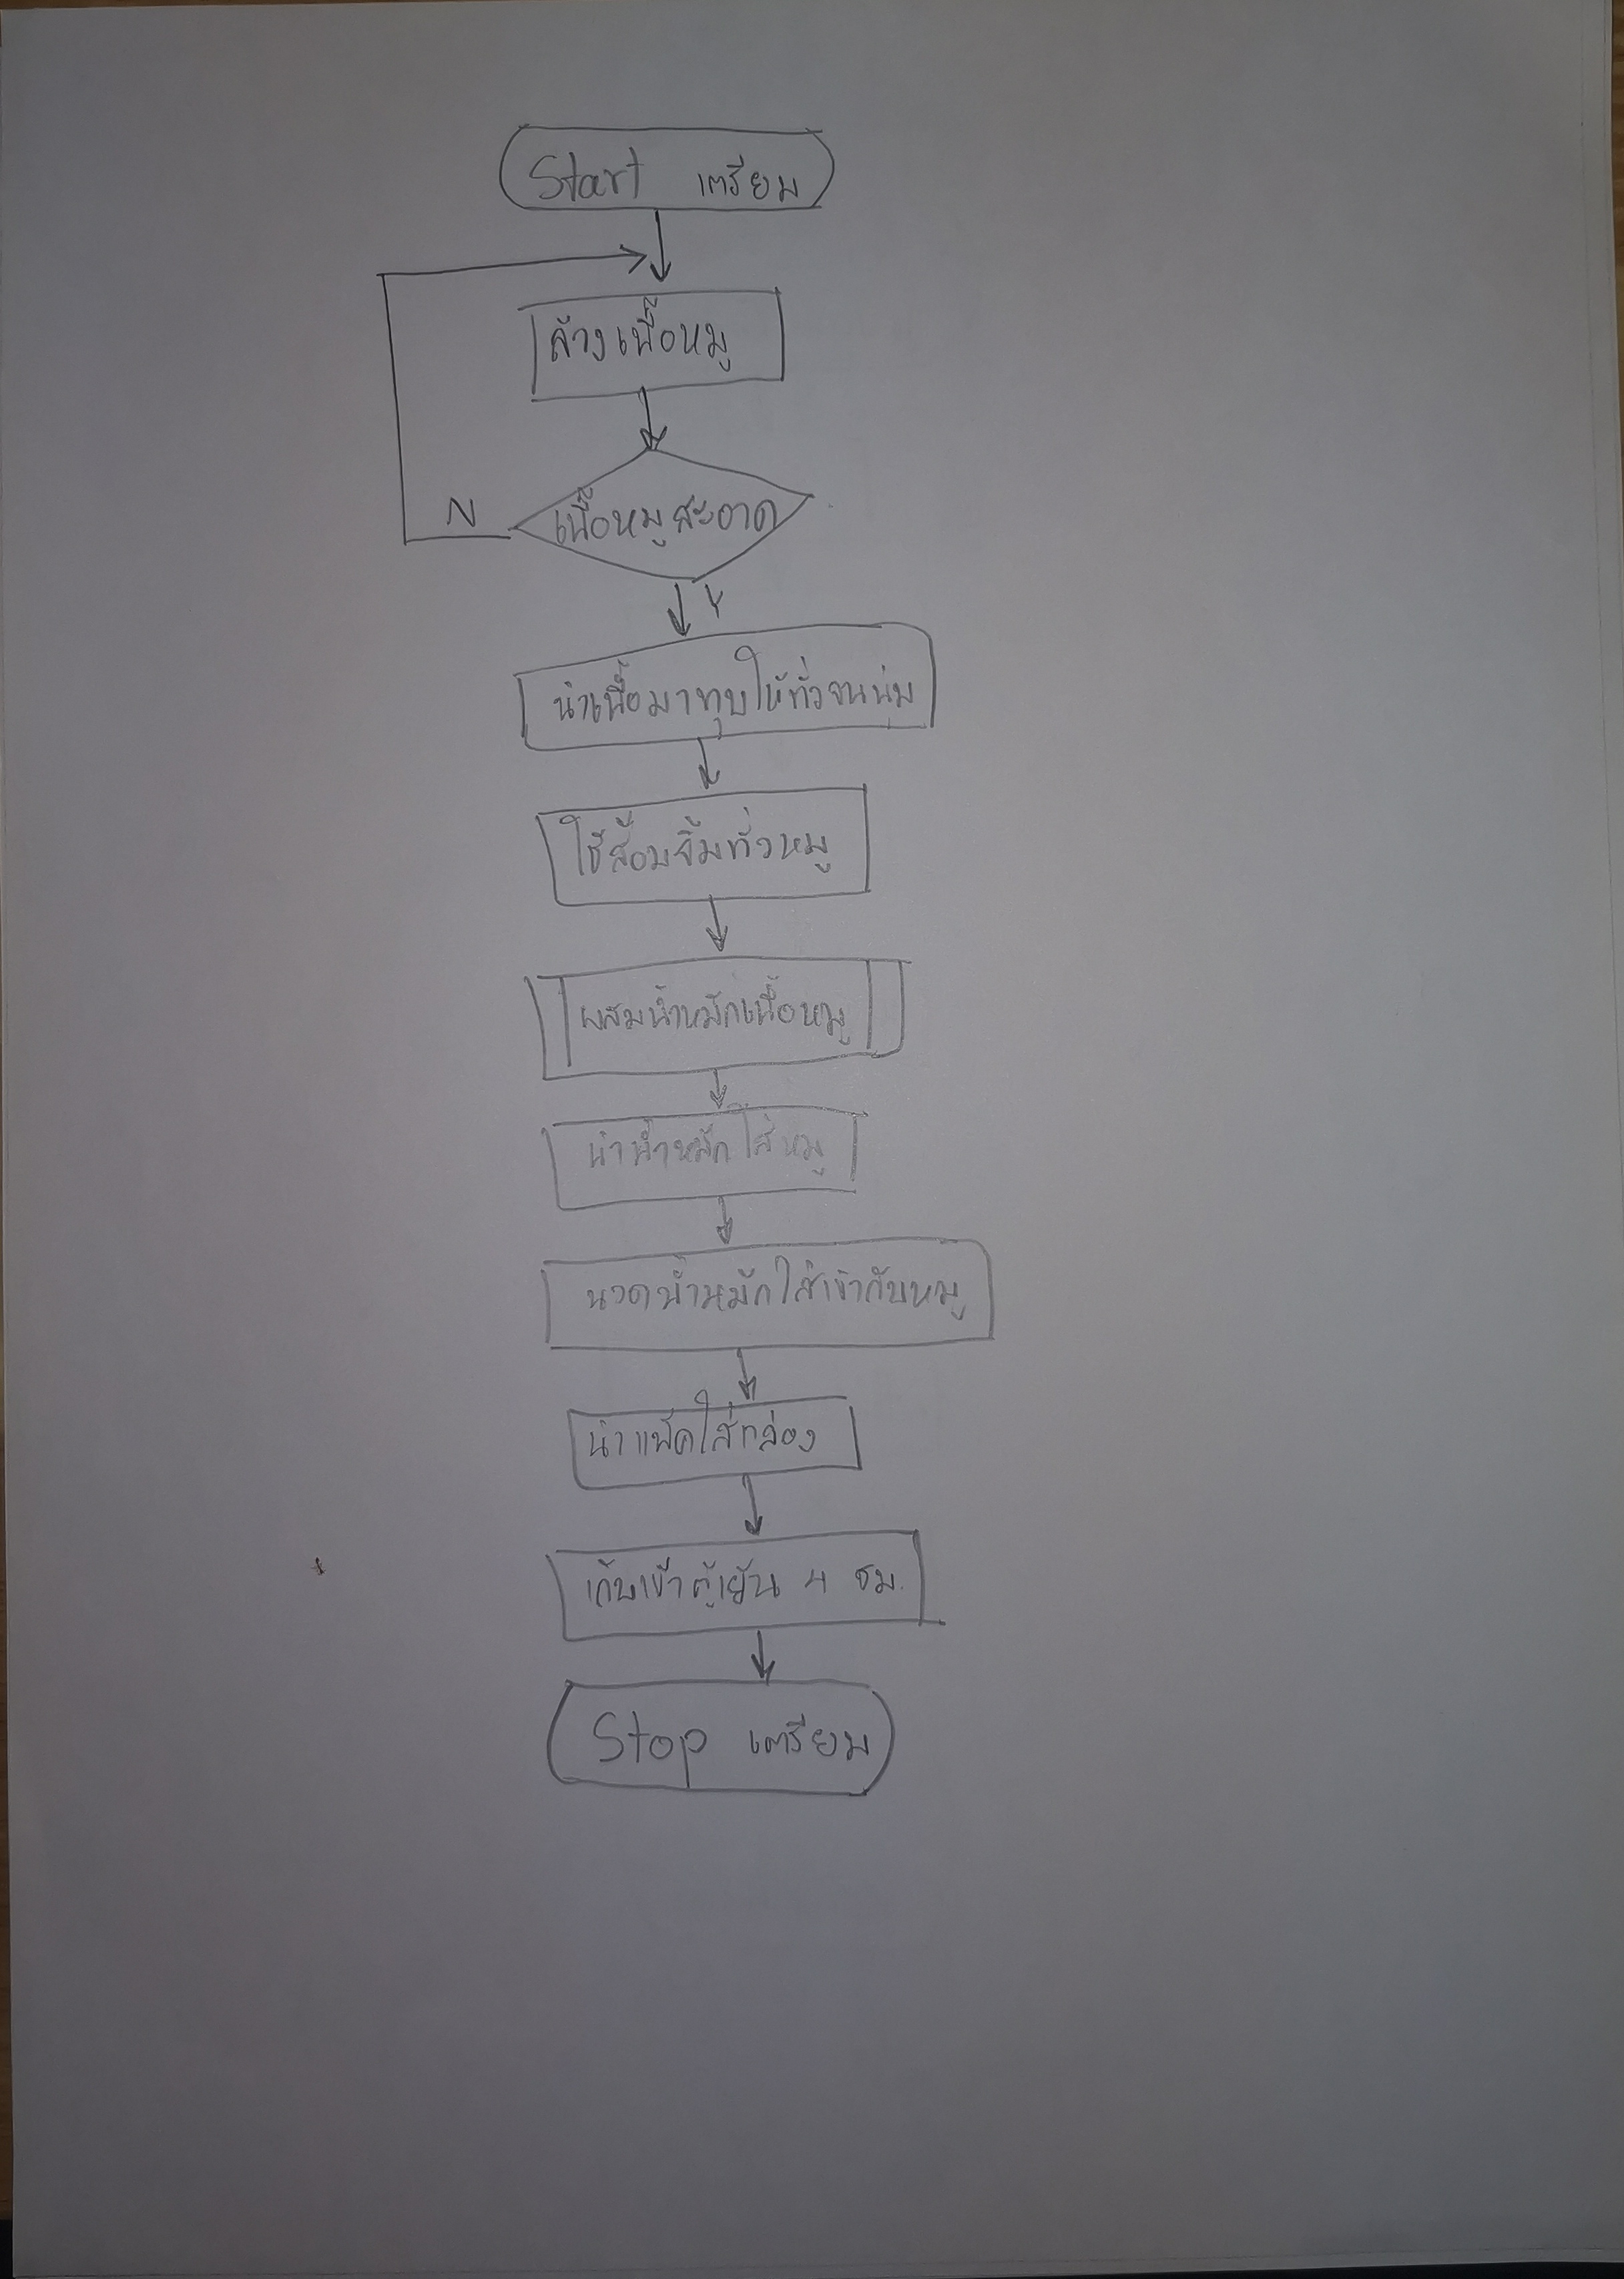 Start เตรียม
ล้างเนื้อหมู
เนื้อหมูสะอาด
N
Y
นำเนื้อมาทุบให้ทั่วจนนุ่ม
ใช้ส้อมจิ้มทั่วหมู
ผสมน้ำหมักเนื้อหมู
นำน้ำหมักใส่หมู
นวดน้ำหมักใส่เข้ากับหมู
นำแพ็คใส่กล่อง
เก็บเข้าตู้เย็น 4 ชม.
Stop เตรียม